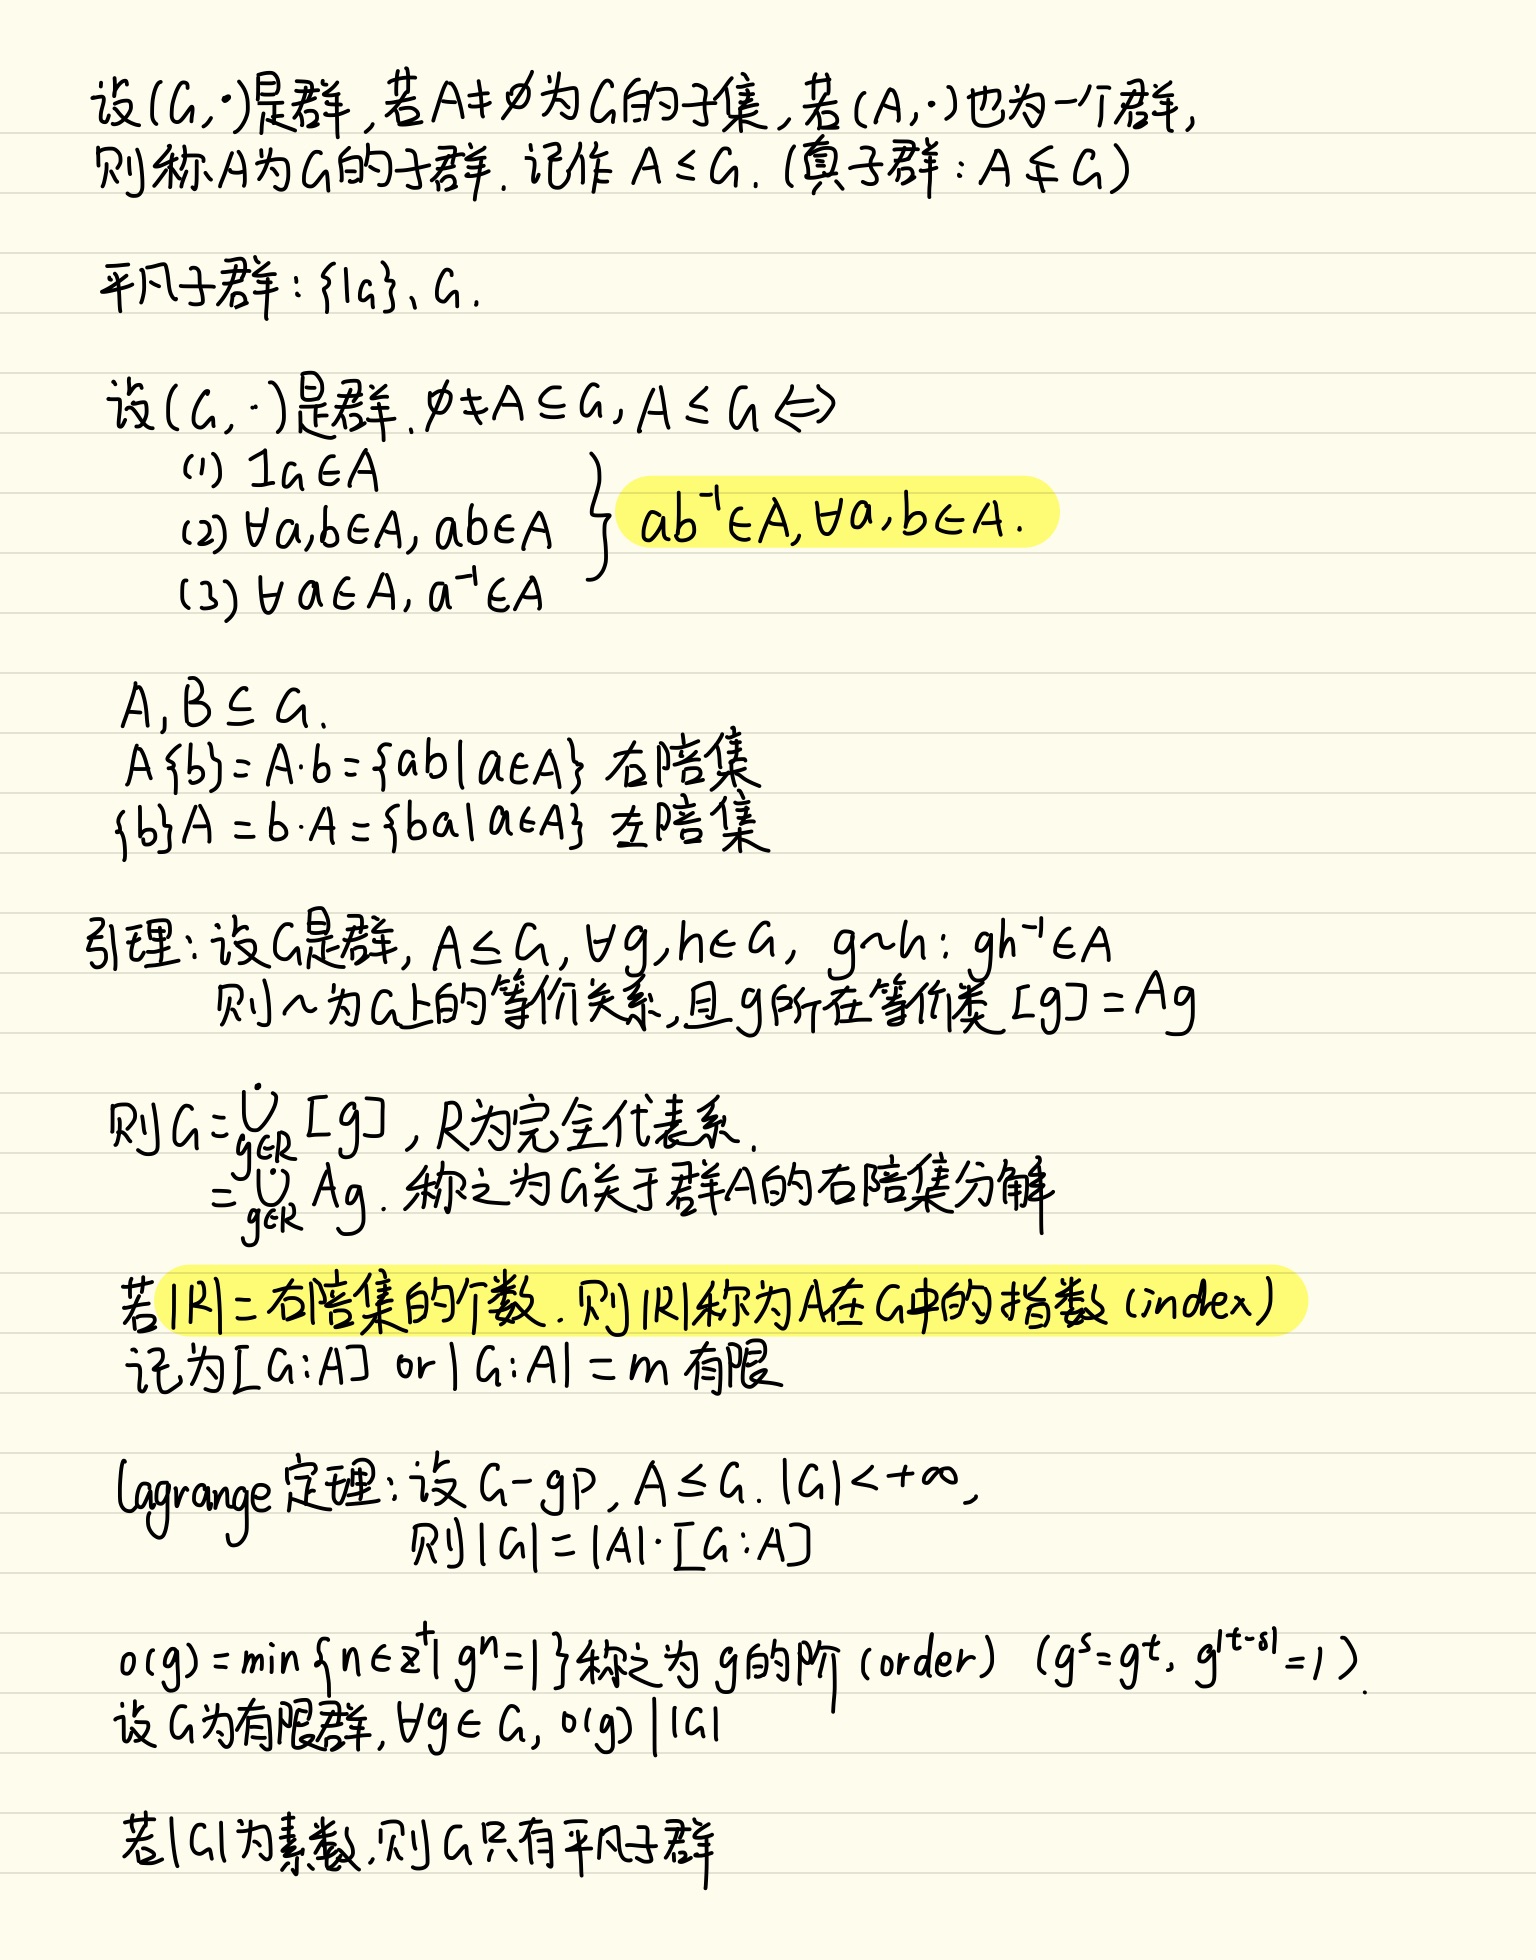 设(G,·)是群,若A≠∅为G的子集,若(A,·)也为一个群,
则称A为G的子群.记作 A≤G. (真子群:A≨G)
平凡子群:{1G}、G.
设(G,·)是群.∅≠A⊆G, A≤G⇔
(1) 1G∈A
(2) ∀a,b∈A, ab∈A } ab⁻¹∈A,∀a,b∈A.
(3) ∀a∈A, a⁻¹∈A
A,B⊆G.
A{b}=A·b={ab|a∈A} 右陪集
{b}A=b·A={ba|a∈A} 左陪集
引理:设G是群, A≤G, ∀g,h∈G, g~h: gh⁻¹∈A
则~为G上的等价关系,且g所在等价类[g]=Ag
则G=∪̇_{g∈R} [g], R为完全代表系.
=∪̇_{g∈R} Ag. 称之为G关于群A的右陪集分解
若|R|=右陪集的个数.则|R|称为A在G中的指数(index)
记为[G:A] or |G:A|=m 有限
Lagrange定理:设G-gp, A≤G. |G|<+∞,
则|G|=|A|·[G:A]
o(g)=min{n∈z⁺| gⁿ=1}称之为g的阶(order) (gˢ=gᵗ, g^{|t-s|}=1).
设G为有限群,∀g∈G, o(g)||G|
若|G|为素数.则G只有平凡子群